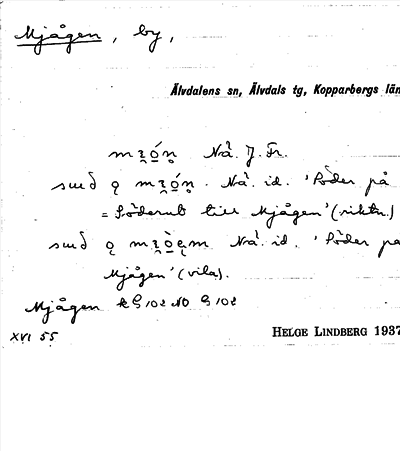 Mjågen, by,
Älvdalens sn, Älvdals tg, Kopparbergs län
Nå. J. Fr.
Nå. id. 'Söder på
= Söderut till Mjågen' (riktn.)
Nå. id. 'Söder på
Mjågen' (vila).
Mjågen kG 102 NO G 102
XVI 55
HELGE LINDBERG 1937